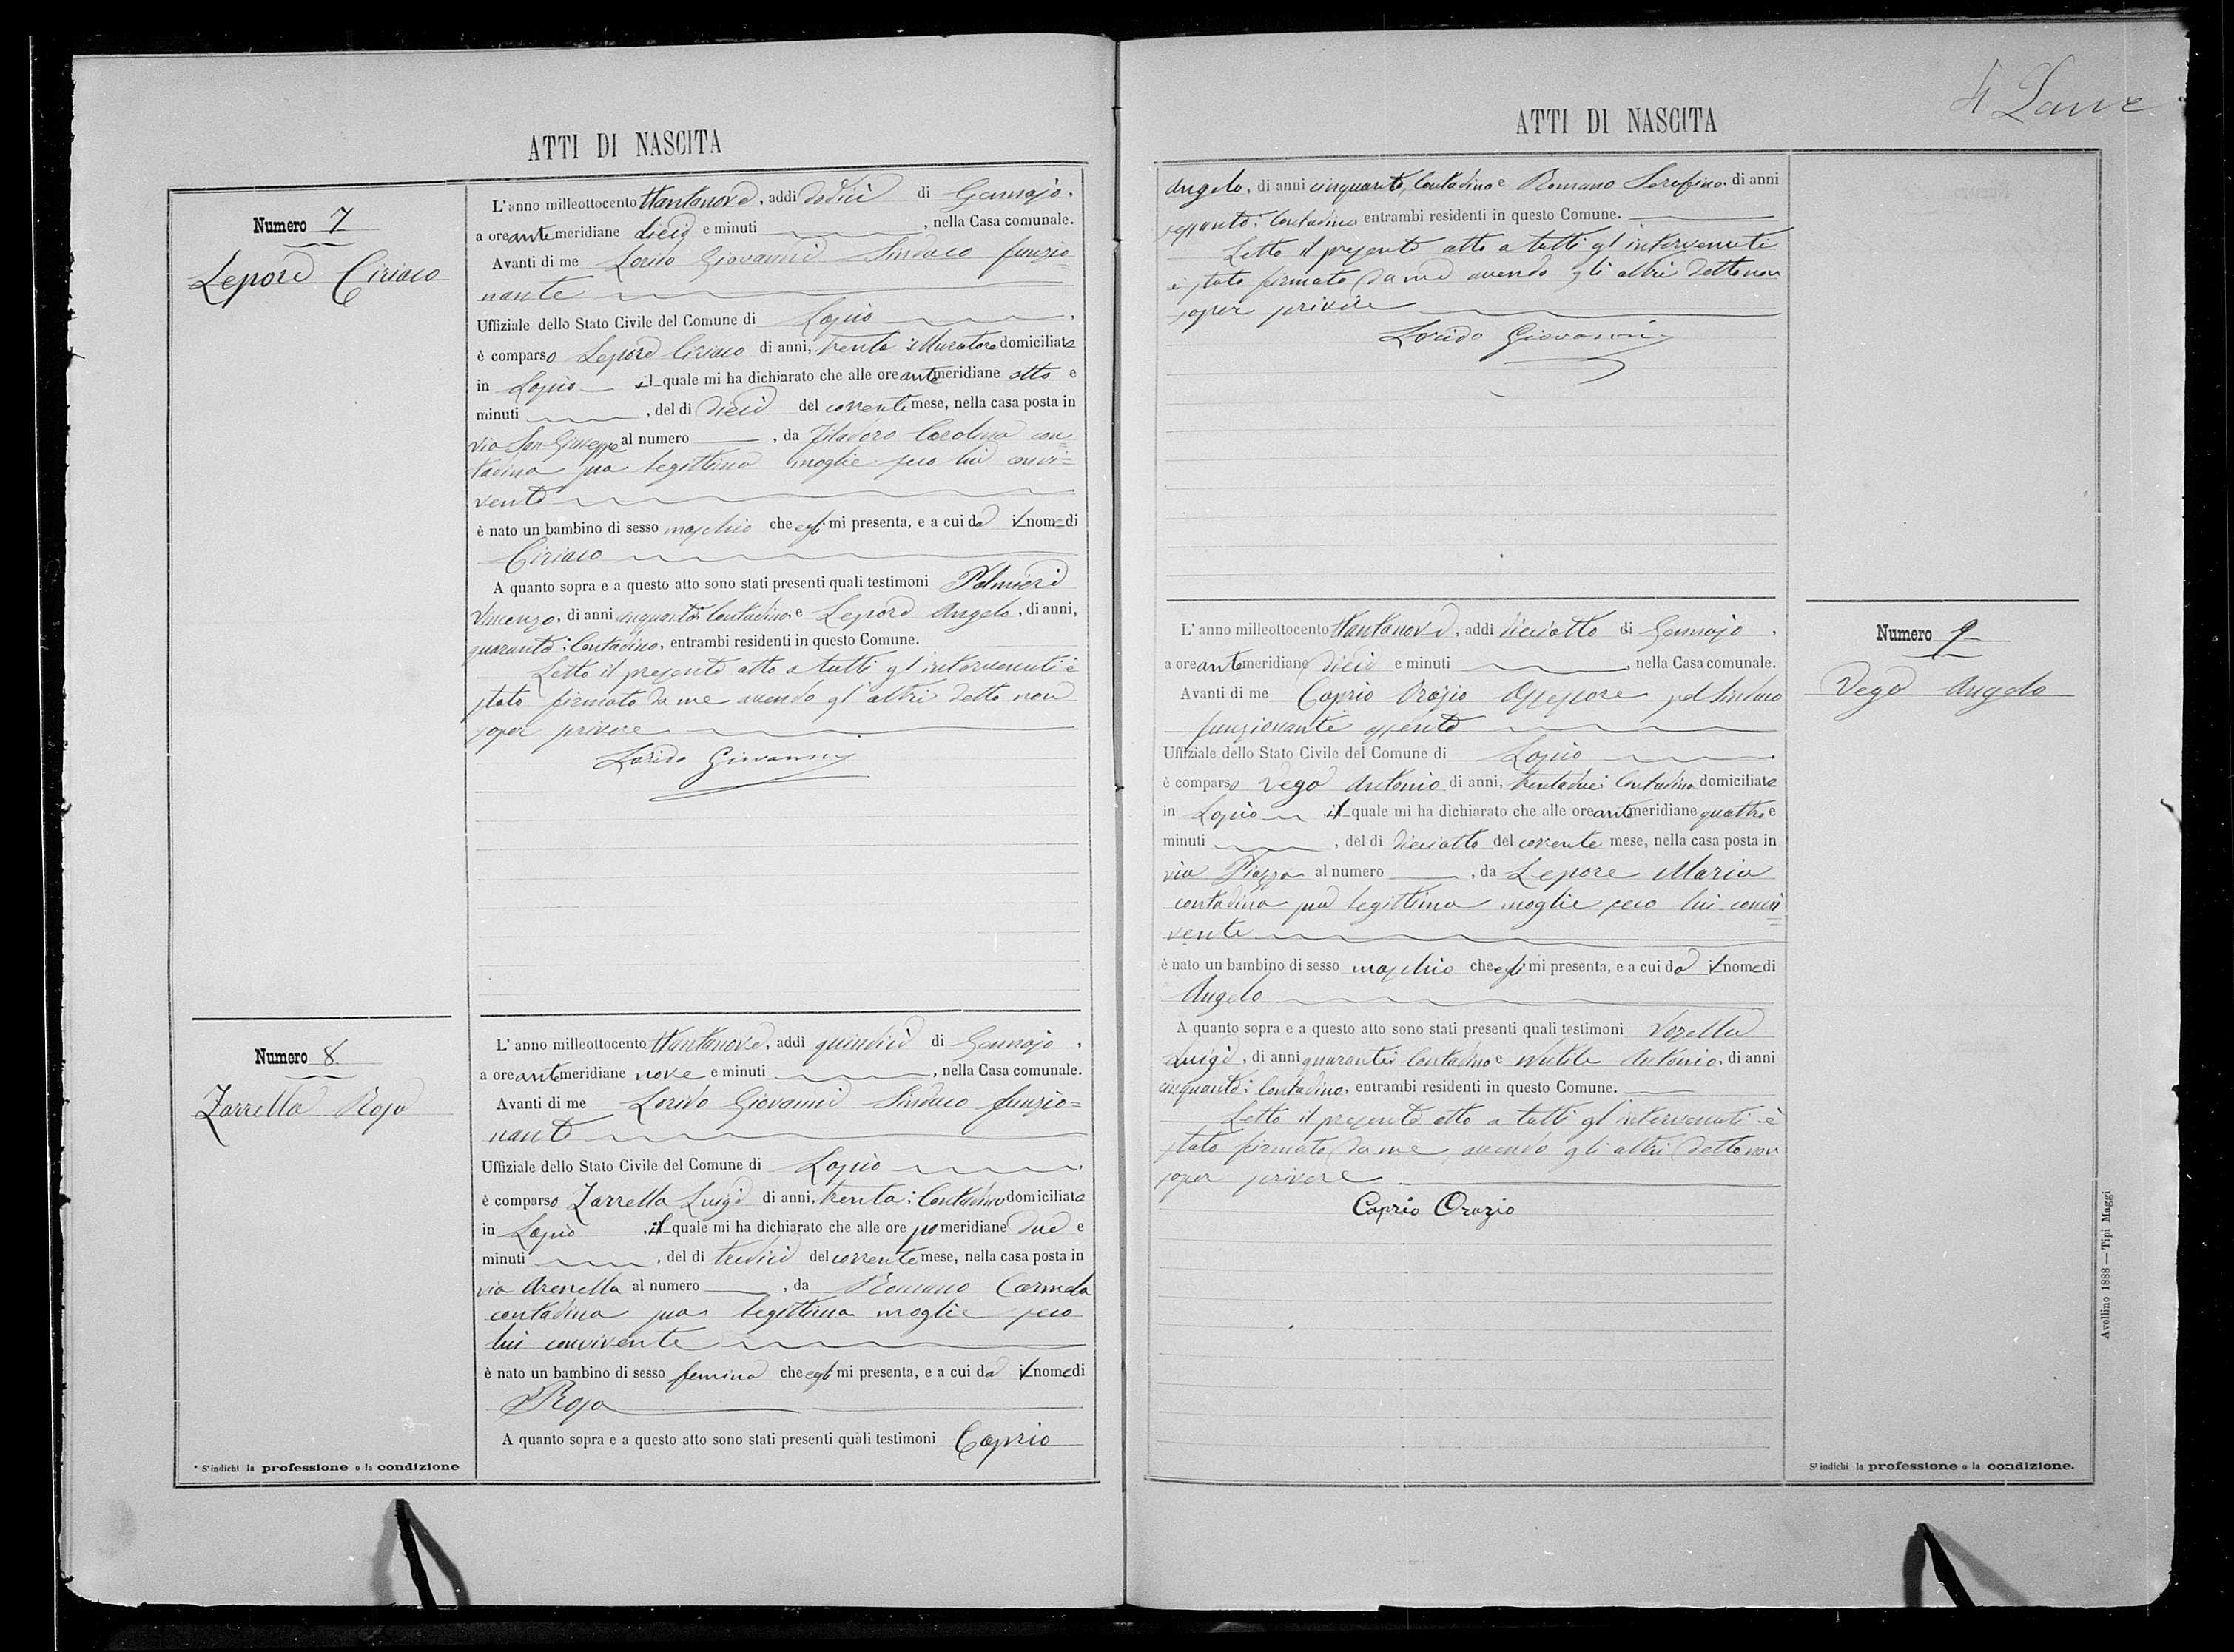 ATTI DI NASCITA
Numero 7
Lepore Ciriaco
L'anno milleottocento ttantanove, addi dodici di Gennajo.
a ore antemeridiane dieci e minuti , nella Casa comunale.
Avanti di me Lorido Giovanni Sindaco funzio=
nante
Uffiziale dello Stato Civile del Comune di Lapio .
è comparso Lepore Ciriaco di anni, trenta : Muratore domiciliato
in Lapio il quale mi ha dichiarato che alle ore antemeridiane otto e
minuti , del dì dieci del corrente mese, nella casa posta in
via San Giuseppe al numero , da Filadoro Carolina con=
tadina sua legittima moglie seco lui convi=
vente
è nato un bambino di sesso maschio che egli mi presenta, e a cui da il nome di
Ciriaco
A quanto sopra e a questo atto sono stati presenti quali testimoni Palmieri
Vincenzo, di anni cinquanta: Contadino e Lepore Angelo, di anni,
quaranta: Contadino, entrambi residenti in questo Comune.
Letto il presente atto a tutti gl'intervenuti è
stato firmato da me avendo gl'altri detto non
saper scrivere
Lorido Giovanni
Numero 8.
Zarrella Rosa
L'anno milleottocento ttantanove, addi quindici di Gennajo ,
a ore antemeridiane nove e minuti , nella Casa comunale.
Avanti di me Lorido Giovanni Sindaco funzio=
nante
Uffiziale dello Stato Civile del Comune di Lapio .
è comparso Zarrella Luigi di anni, trenta: Contadino domiciliato
in Lapio , il quale mi ha dichiarato che alle ore pomeridiane due e
minuti , del dì tredici del corrente mese, nella casa posta in
via Arenella al numero , da Romano Carmela
contadina sua legittima moglie seco
lui convivente
è nato un bambino di sesso femina che egli mi presenta, e a cui da il nome di
Rosa
A quanto sopra e a questo atto sono stati presenti quali testimoni Caprio
* S'indichi la professione o la condizione
4 
ATTI DI NASCITA
Angelo, di anni cinquanta, Contadino e Romano Serafino, di anni
sessanta: Contadino entrambi residenti in questo Comune.
Letto il presente atto a tutti gl'intervenuti
è stato firmato da me avendo gli altri detto non
saper scrivere
Lorido Giovanni
L'anno milleottocento ttantanove, addi dieciotto di Gennajo .
a ore antemeridiane dieci e minuti , nella Casa comunale.
Avanti di me Caprio Orazio Assessore pel Sindaco
funzionante assente
Uffiziale dello Stato Civile del Comune di Lapio .
è comparso Vega Antonio di anni, trentadue: Contadino domiciliato
in Lapio il quale mi ha dichiarato che alle ore antemeridiane quattro e
minuti , del dì dieciotto del corrente mese, nella casa posta in
via Piazza al numero , da Lepore Maria
contadina sua legittima moglie seco lui convi
vente
è nato un bambino di sesso maschio che egli mi presenta, e a cui da il nome di
Angelo
A quanto sopra e a questo atto sono stati presenti quali testimoni Vozella
Luigi, di anni quaranta: Contadino e Antonio, di anni
cinquanta: Contadino, entrambi residenti in questo Comune.
Letto il presente atto a tutti gl'intervenuti è
stato firmato da me avendo gli altri detto non
saper scrivere
Caprio Orazio
Numero 9
Vega Angelo
S'indichi la professione o la condizione.
Avellino 1888 — Tipi Maggi